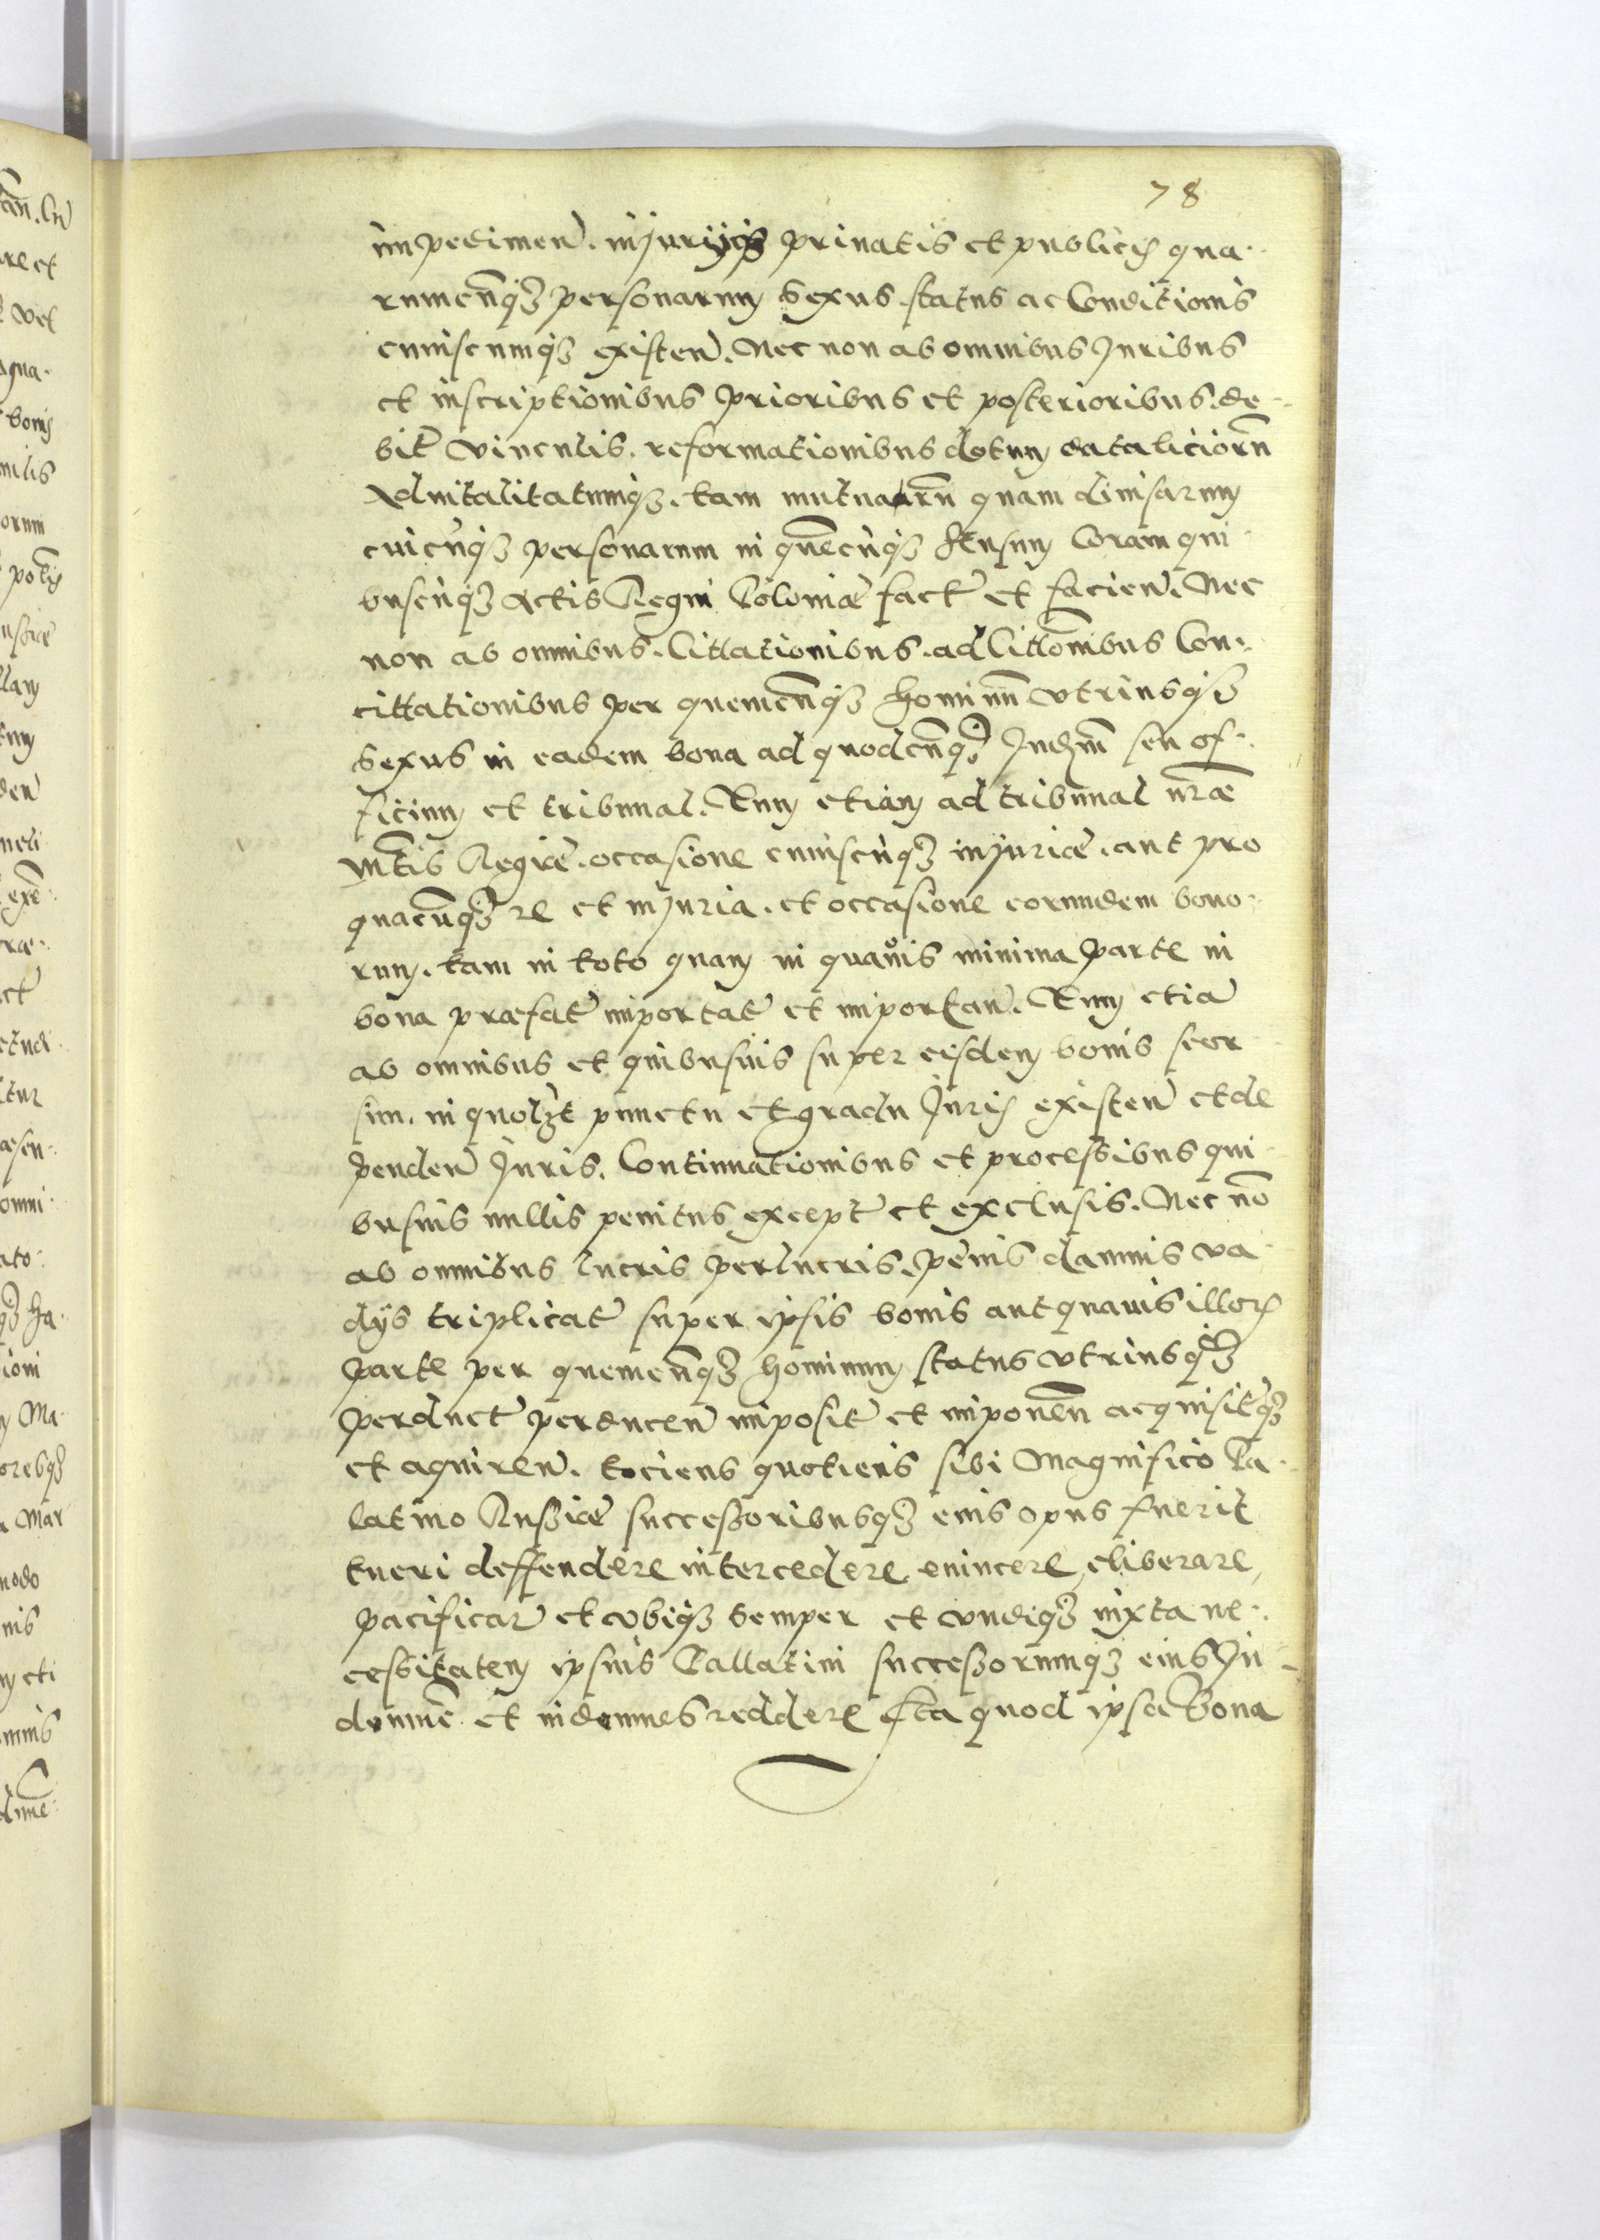 78
impedimen̄. injurijs priuatis et publicis qua-
rumcunq3 personarum sexus status ac Conditionis
cuiuscumq3 existen̄. Nec non ab omnibus Juribus
et inscriptionibus prioribus et posterioribus. de-
bit̄ vinculis. reformationibus dotum dotaliciorū
aduitalitatumq3. tam mutuarū quam diuisarum
cuicūq3 personarum in quēcūq3 sensum Coram qui
buscūq3 Actis Regni Poloniæ fact̄ et facien̄. Nec
non ab omnibus. Cittationibus. ad Cittōnibus Con-
cittationibus per quemcūq3 hominū vtriusq3
sexus in eadem bona ad quodcūq3 Judm̄ seu of-
ficium et tribunal. Tum etiam ad tribunal nræ
Mtis Regiæ. occasione cuiuscūq3 injuriæ. aut pro
quacūq3 re et injuria. et occasione eorundem bono-
rum. tam in toto quam in quauis minima parte in
bona præfat̄ importat̄ et importan̄. Tum etiā
ab omnibus et quibusuis super eisdem bonis seor
sim. in quol3t punctu et gradu Juris existen̄ et de
penden̄ Juris. Continuationibus et processibus qui-
busuis nullis penitus except̄ et exclusis. Nec nō
ab omnibus lucris perlucris. pēnis damnis va-
dys triplicat̄ super ipsis bonis aut quauis illor
parte per quemcūq3 hominum status vtriusq3
perduct̄ perducen̄ imposit̄ et imponen̄ acquisit̄q3
et aquiren̄. tociens quotiens sibi Magnifico Pa-
latino Russiæ successoribusq3 eius opus fuerit
tueri deffendere intercedere euincere eliberare,
pacificar̄ et vbiq3 semper et vndiq3 iuxta ne-
cessitatem ipsius Pallatini successorumq3 eius In-
demnē et indemnes reddere Ita quod ipsa Bona